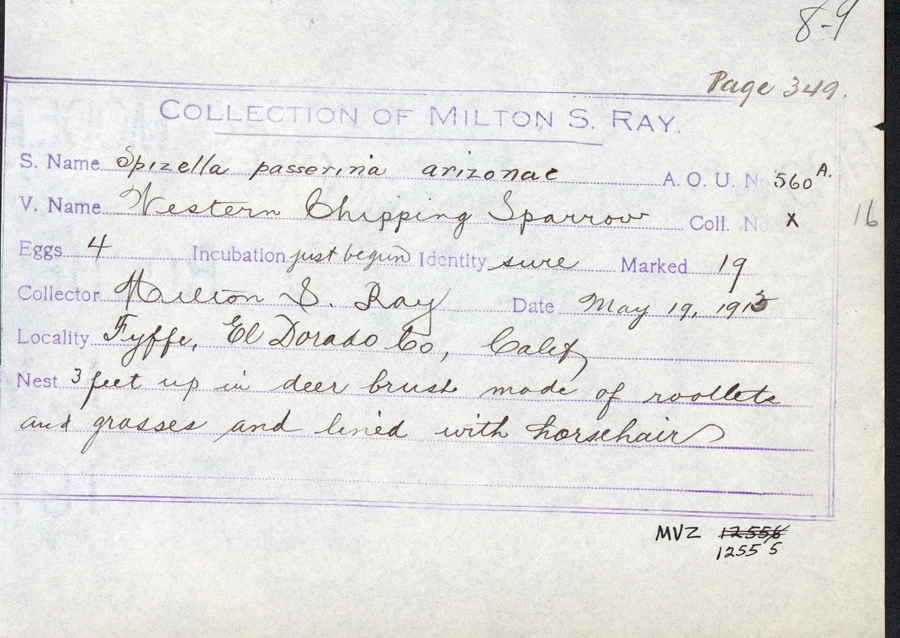 8-9
Page 349.
COLLECTION OF MILTON S. RAY.
S. Name Spizella passerina arizonae A. O. U. No 560 A.
V. Name Western Chipping Sparrow Coll. No x 16
Eggs 4 Incubation just begun Identity sure Marked 19
Collector Milton S. Ray Date May 19, 1913
Locality Fyffe, El Dorado Co, Calif
Nest 3 feet up in deer brush made of rootlets
and grasses and lined with horsehair
MVZ 12556
12555